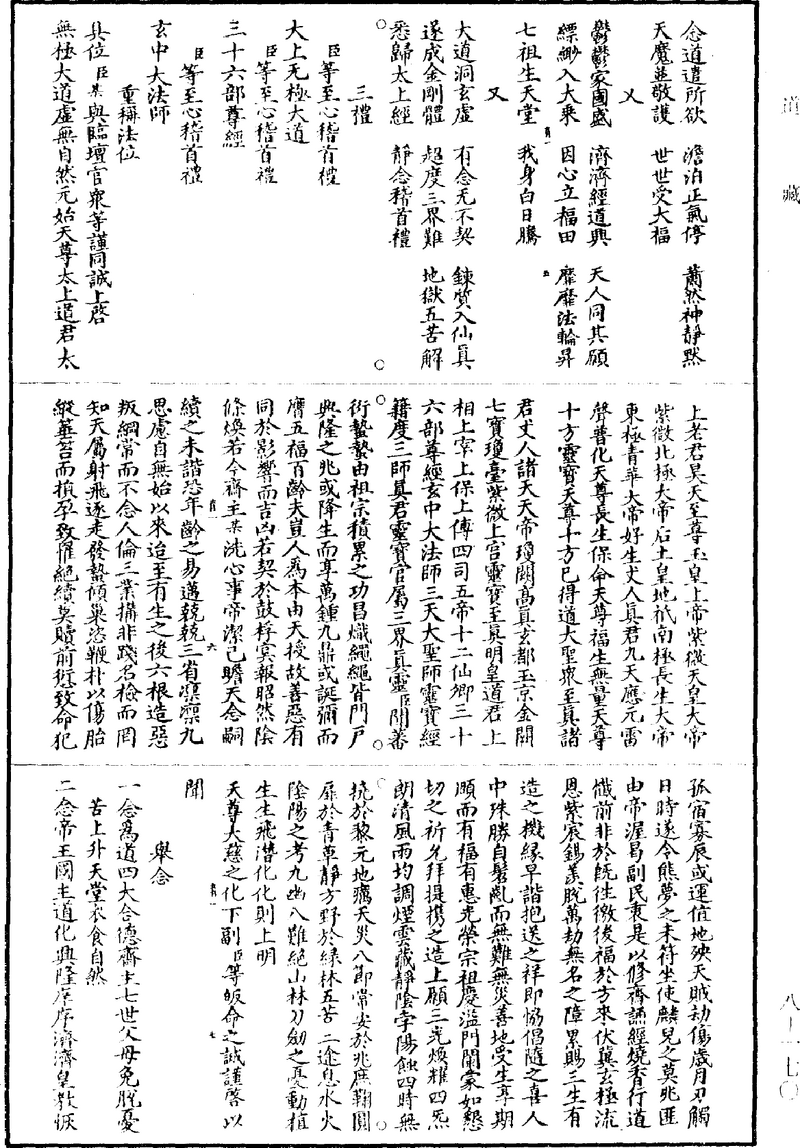 道藏
念道遣所欲　澹泊正氣停　蕭然神靜默
天魔並敬護　世世受大福
又
鬱鬱家國盛　濟濟經道興　天人同其願
縹緲入大乘　因心立福田　靡靡法輪昇
七祖生天堂　我身白日騰
又
大道洞玄虛　有念无不契　鍊質入仙真
遂成金剛體　超度三界難　地獄五苦解
悉歸太上經　靜念稽首禮
三禮
臣等至心稽首禮
大上无極大道
臣等至心稽首禮
三十六部尊經
臣等至心稽首禮
玄中大法師
重稱法位
具位臣某與臨壇官衆等謹同誠上啓
無極大道虛無自然元始天尊太上道君太
上老君昊天至尊玉皇上帝紫微天皇大帝
紫微北極大帝后土皇地祇南極長生大帝
東極青華大帝好生丈人真君九天應元雷
聲普化天尊長生保命天尊福生無量天尊
十方靈寶天尊十方已得道大聖衆至真諸
君丈人諸天天帝瓊闕高真玄都玉京金闕
七寶瓊臺紫微上宮靈寶至真明皇道君上
相上宰上保上傅四司五帝十二仙卿三十
六部尊經玄中大法師三天大聖師靈寶經
籍度三師真君靈寶官屬三界真靈臣聞蕃
衍蟄蟄由祖宗積累之功昌熾繩繩皆門戶
興隆之兆或降生而享萬鍾九鼎或誕彌而
膺五福百齡夫豈人爲本由天授故善惡有
同於影響而吉凶若契於鼓桴冥報昭然陰
條煥若今齋主某洗心事帝潔己瞻天念嗣
續之未諧恐年齡之易邁兢兢三省凜凜九
思慮自無始以來迨至有生之後六根造惡
叛綱常而不念人倫三業搆非踐名檢而罔
知天屬射飛逐走發蟄傾巢恣鞭朴以傷胎
縱箠笞而損孕致罹絕續莫贖前愆致命犯
孤宿寡辰或運值地殃天賊劫傷歲月刃觸
日時遂令熊夢之未符坐使麟兒之莫兆匪
由帝渥曷副民衷是以修齋誦經燒香行道
懺前非於旣往徼後福於方來伏冀玄極流
恩紫宸錫羨脫萬劫無名之障累賜三生有
造之機緣早諧抱送之祥即恊倡隨之喜人
中殊勝自髫齓而無難無災善地受生享期
頤而有福有惠光榮宗祖慶溢門闌蒙如懇
切之祈允拜提携之造上願三光煥耀四炁
朗清風雨均調煙雲歛靜陰孛陽蝕四時無
抗於黎元地癘天災八節常安於兆庶鞠圓
扉於青草靜方野於綠林五苦三途息水火
陰陽之考九幽八難絕山林刀劒之憂動植
生生飛潛化化則上明
天尊大慈之化下副臣等皈命之誠謹啓以
聞
舉念
一念爲道四大合德齋主七世父母免脫憂
苦上升天堂衣食自然
二念帝王國主道化興隆庠序濟濟皇教恢
八—一七〇